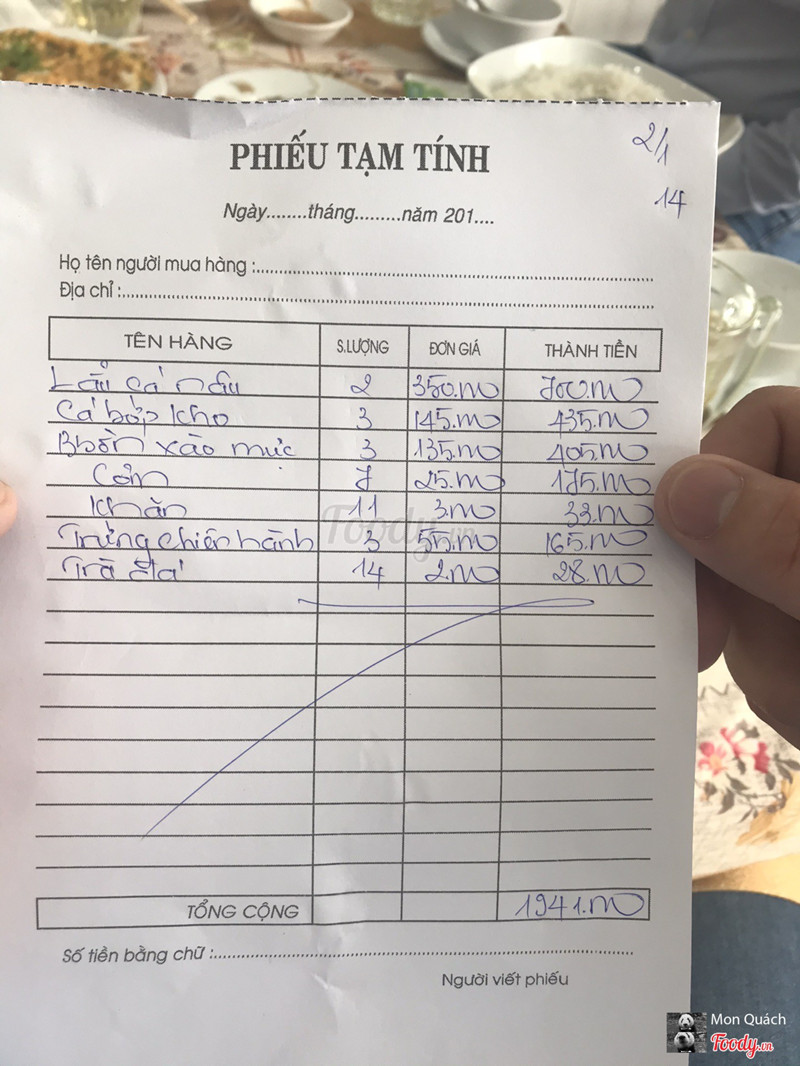 PHIẾU TẠM TÍNH
2/1
14
Ngày........tháng.........năm 201....
Họ tên người mua hàng :
Địa chỉ :
TÊN HÀNG S.LƯỢNG ĐƠN GIÁ THÀNH TIỀN
Lẩu cá nấu 2 350.000 700.000
Cá bớp kho 3 145.000 435.000
Bồn xào mực 3 135.000 405.000
Cơm 7 25.000 175.000
Khăn 11 3.000 33.000
Trứng chiên hành 3 55.000 165.000
Trà đá 14 2.000 28.000
Foody.vn
TỔNG CỘNG 1941.000
Số tiền bằng chữ :
Người viết phiếu
Mon Quách
Foody.vn